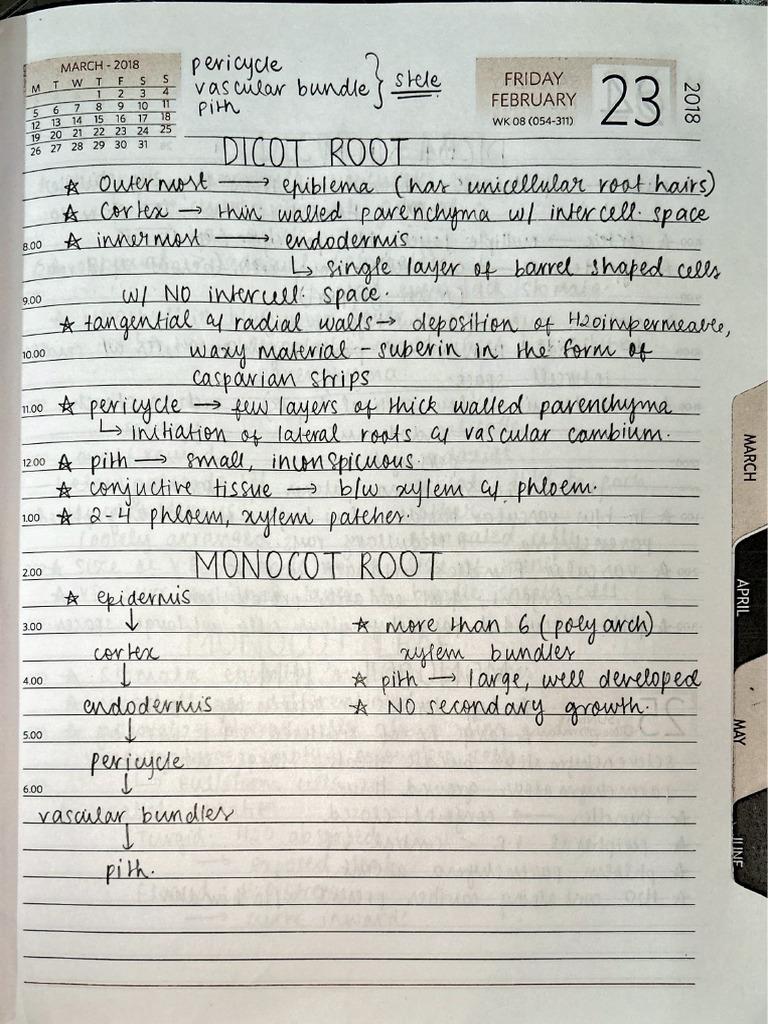 MARCH - 2018
M T W T F S S
1 2 3 4
5 6 7 8 9 10 11
12 13 14 15 16 17 18
19 20 21 22 23 24 25
26 27 28 29 30 31
pericycle
vascular bundle } stele
pith
FRIDAY
FEBRUARY
WK 08 (054-311)
23
2018
DICOT ROOT
☆ Outermost → epiblema (has unicellular root hairs)
☆ Cortex → thin walled parenchyma w/ intercell. space
8.00 ☆ innermost → endodermis
↳ single layer of barrel shaped cells
9.00 w/ NO intercell. space.
☆ tangential a/ radial walls → deposition of H2O impermeable,
10.00 waxy material - suberin in the form of
casparian strips
11.00 ☆ pericycle → few layers of thick walled parenchyma
↳ initiation of lateral roots a/ vascular cambium.
12.00 ☆ pith → small, inconspicuous.
☆ conjuctive tissue → b/w xylem a/ phloem.
1.00 ☆ 2-4 phloem, xylem patches.
2.00 MONOCOT ROOT
☆ epidermis
↓
3.00 ☆ more than 6 (polyarch)
cortex xylem bundles
↓
4.00 ☆ pith → large, well developed
endodermis ☆ NO secondary growth.
↓
5.00
pericycle
↓
6.00
vascular bundles
↓
pith.
MARCH
APRIL
MAY
JUNE